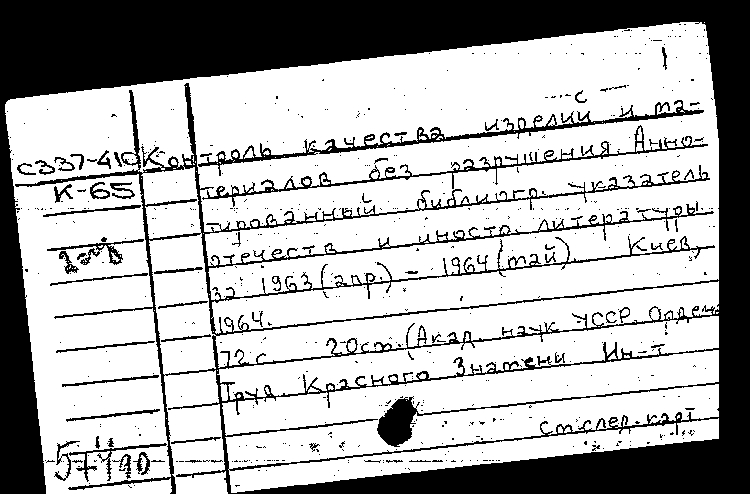 1
с
С337-410 Контроль качества изделий и ма-
К-65 териалов без разрушения. Анно-
тированный библиогр. указатель
отечеств и иностр. литературы
за 1963 (апр.) - 1964 (май). Киев,
1964.
72 с. 20см. (Акад. наук УССР. Ордена
Труд. Красного Знамени Ин-т
См.след.карт